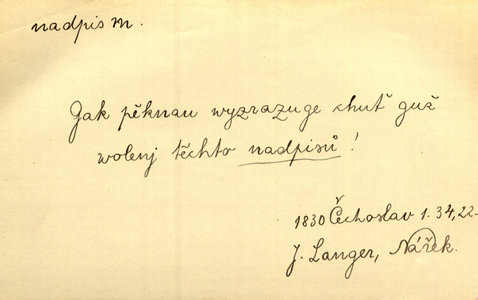 nadpis m.
Gak pěknau wyzrazuge chuť guž
wolenj těchto nadpisů!
1830 Čechoslav 1.34,22-
J. Langer, Nářek.